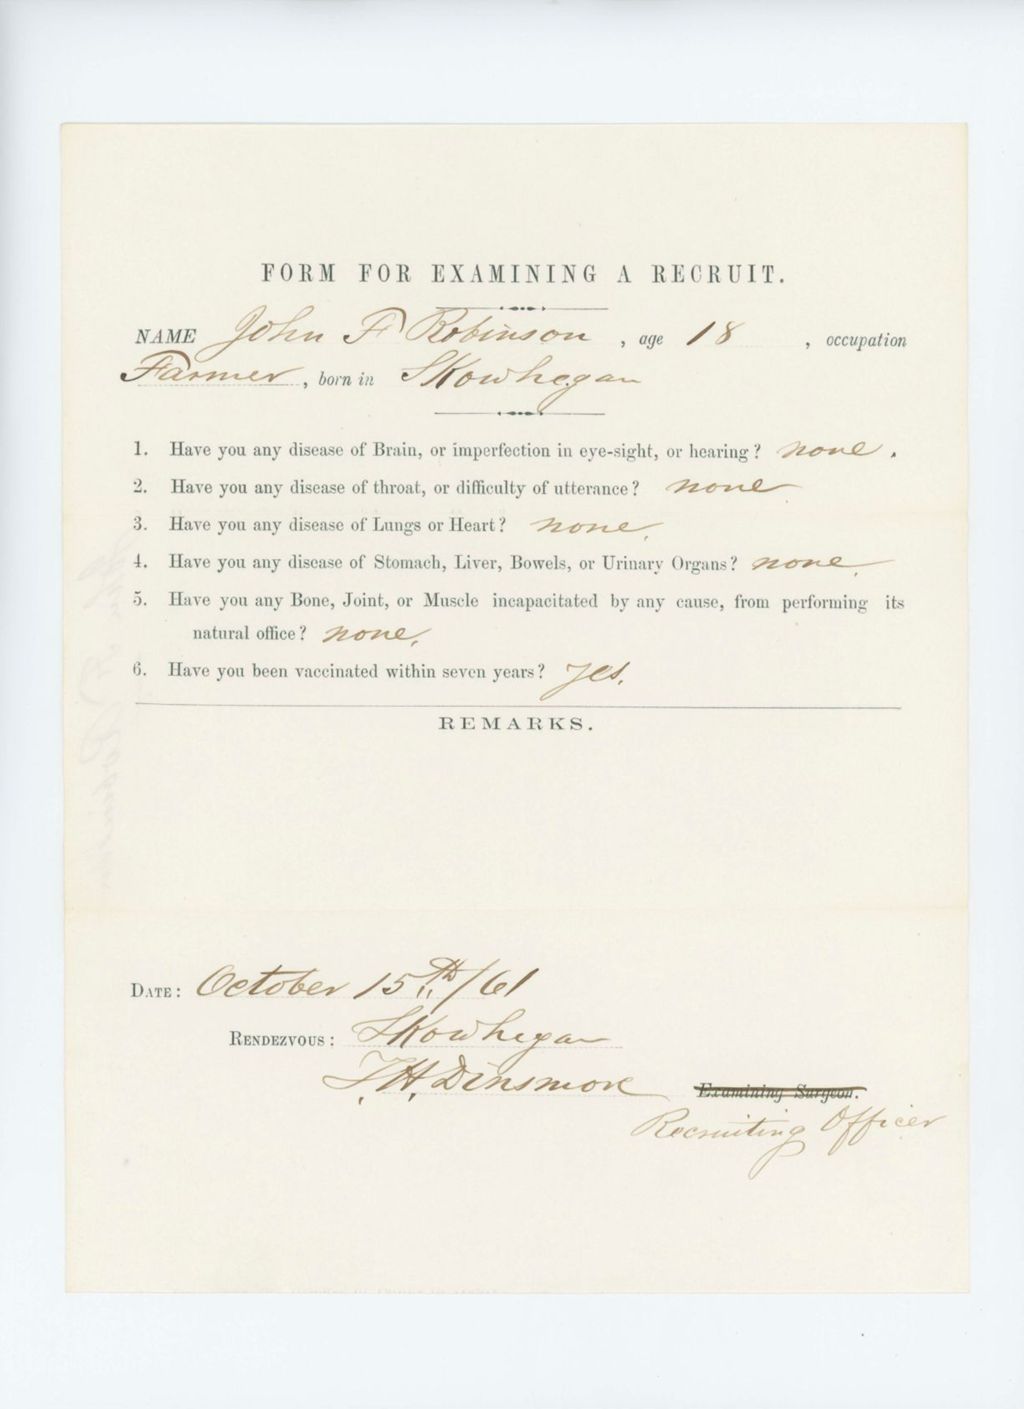 FORM FOR EXAMINING A RECRUIT.
NAME John F Robinson, age 18, occupation
Farmer, born in Skowhegan
1. Have you any disease of Brain, or imperfection in eye-sight, or hearing? none.
2. Have you any disease of throat, or difficulty of utterance? none
3. Have you any disease of Lungs or Heart? none.
4. Have you any disease of Stomach, Liver, Bowels, or Urinary Organs? none.
5. Have you any Bone, Joint, or Muscle incapacitated by any cause, from performing its
natural office? none.
6. Have you been vaccinated within seven years? yes.
REMARKS.
DATE: October 15th/61
RENDEZVOUS: Skowhegan
Dinsmore Examining Surgeon.
Recruiting Officer